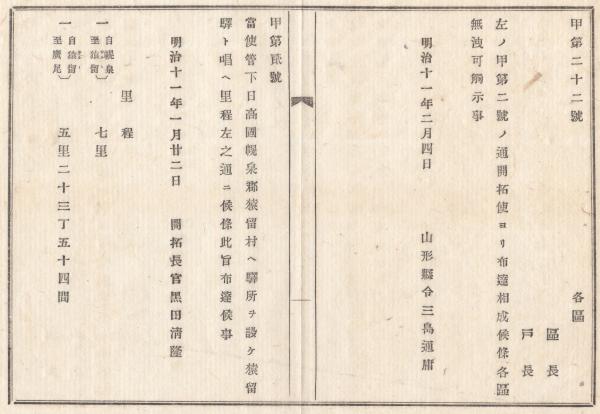 甲第二十二號
各區
區長
戸長
左ノ甲第二號ノ通開拓使ヨリ布達相成候條各區
無洩可觸示事
明治十一年二月四日
山形縣令三島通庸
甲第貳號
當使管下日高國幌泉郡猿留村ヘ驛所ヲ設ケ猿留
驛ト唱ヘ里程左之通ニ候條此旨布達候事
明治十一年一月廿二日
開拓長官黒田清隆
里程
一 自幌泉至猿留 七里
一 自猿留至廣尾 五里二十三丁五十四間